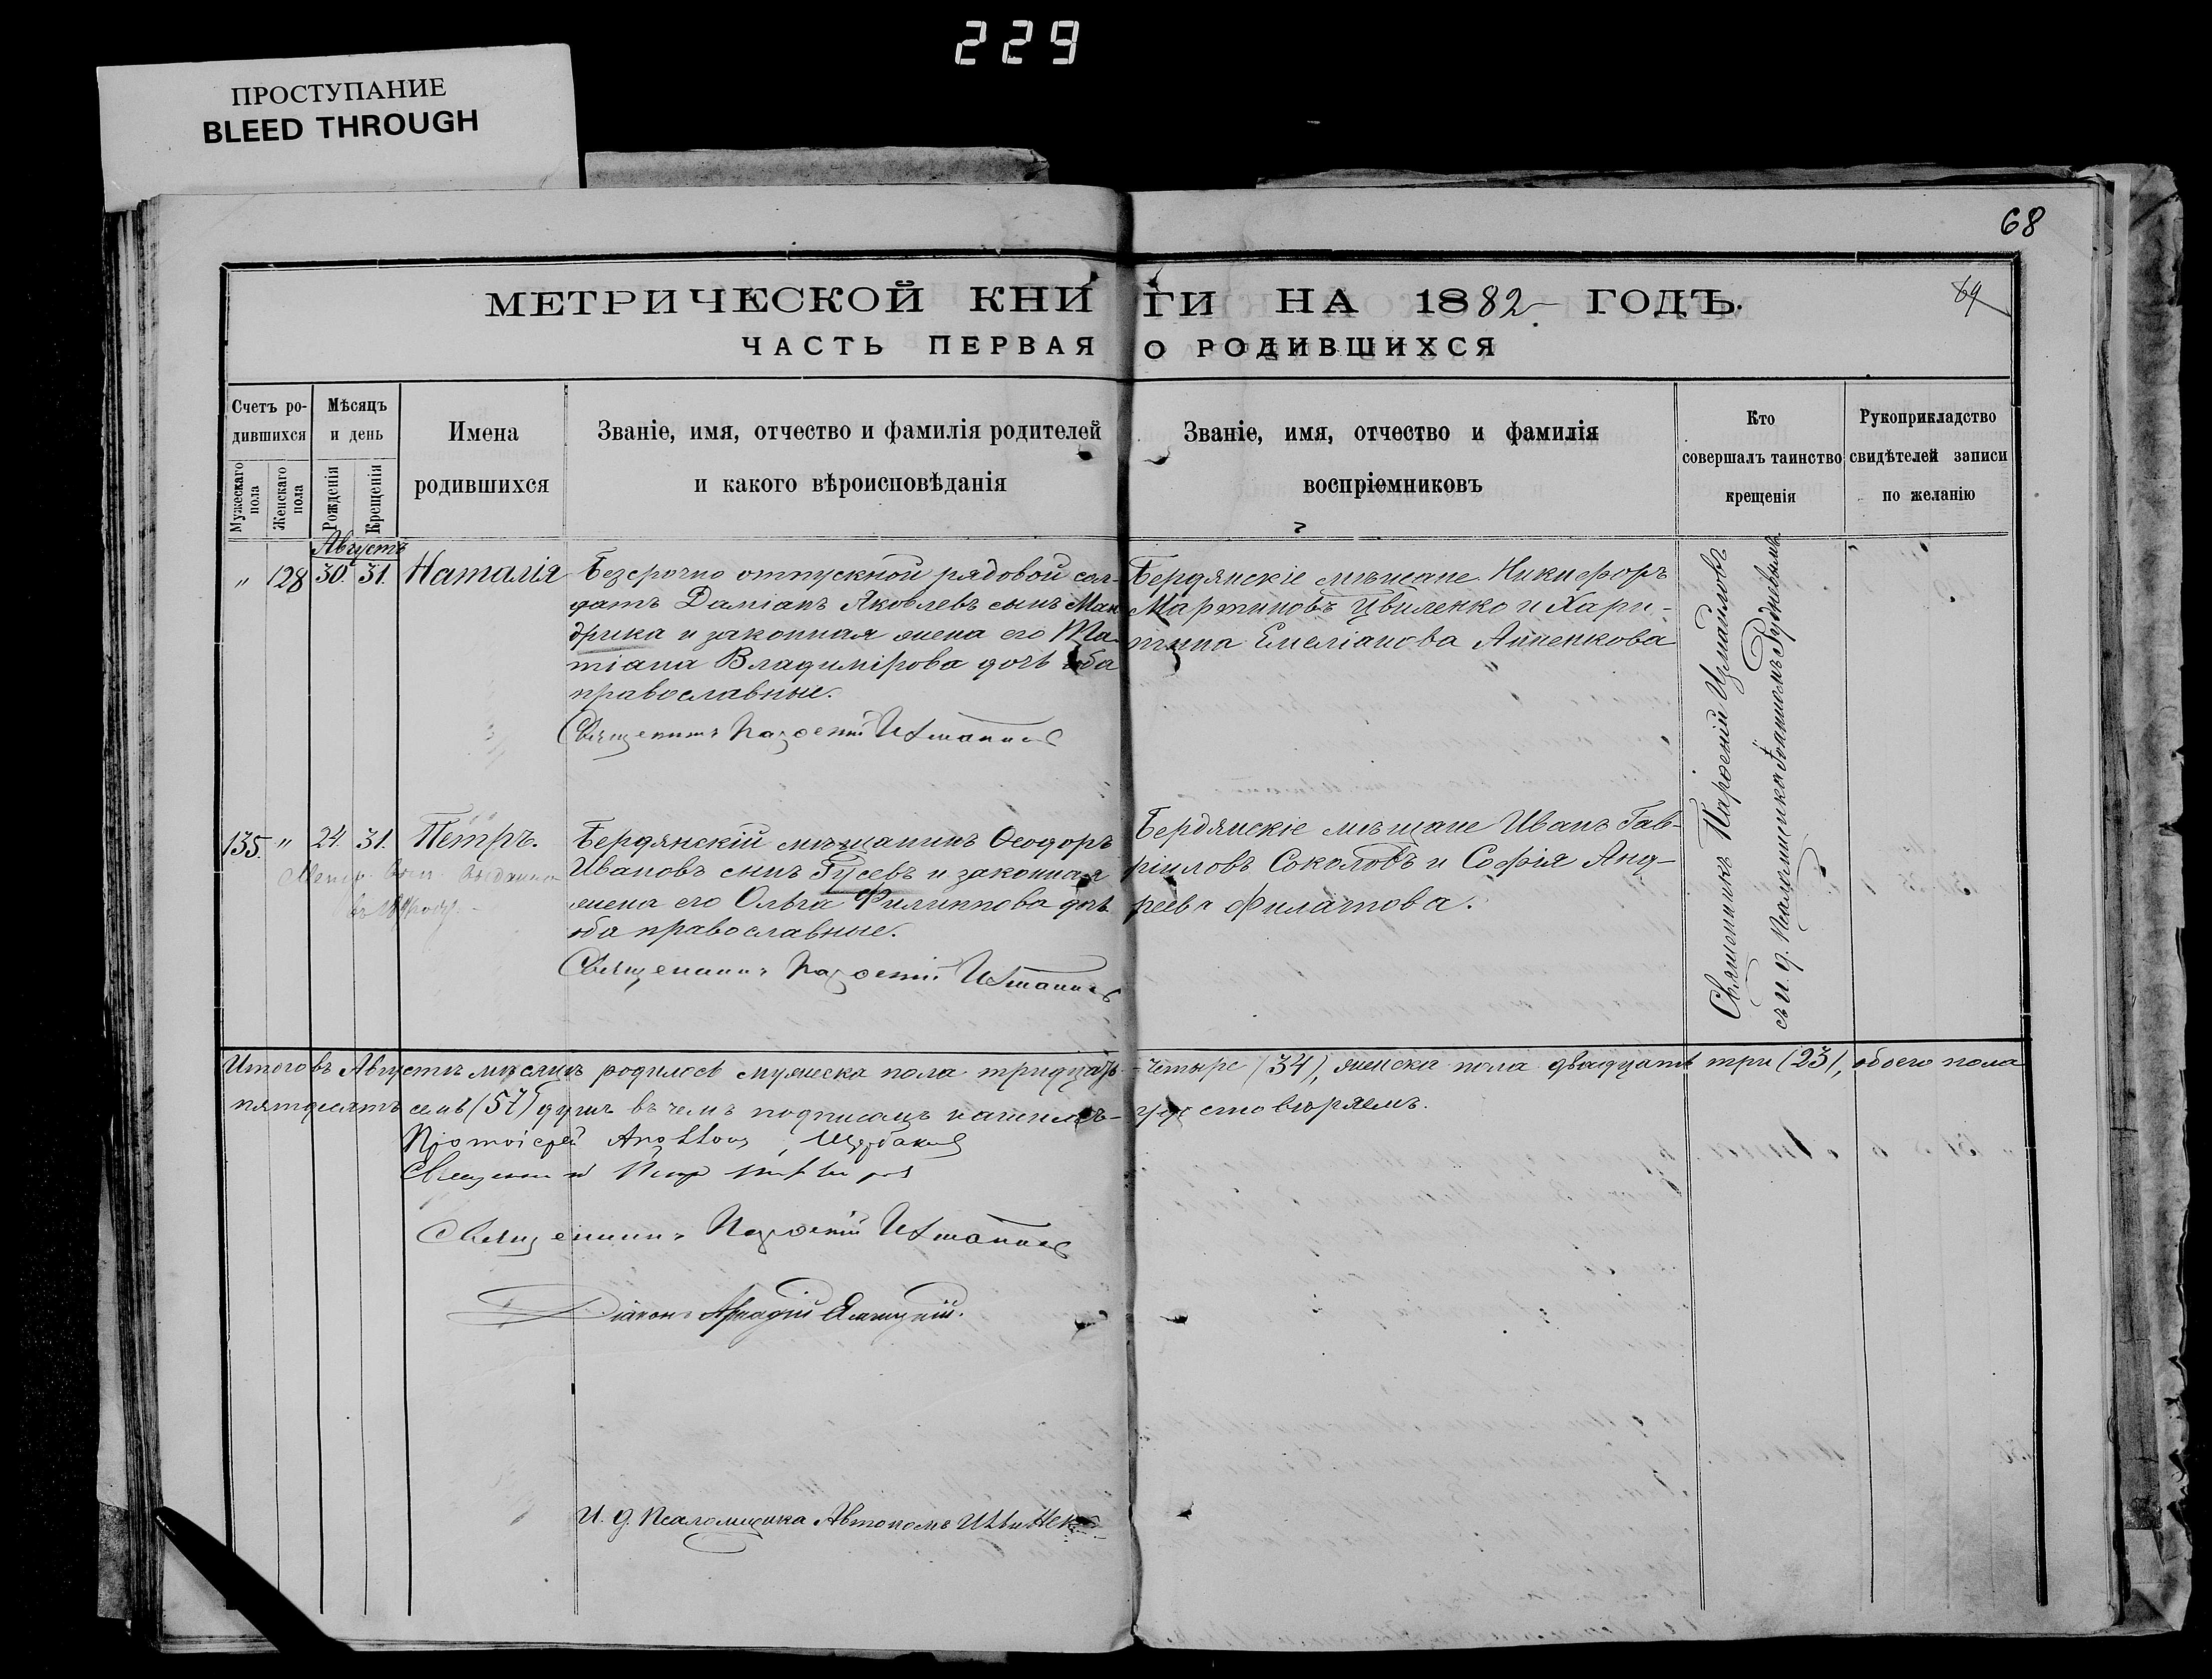 229
ПРОСТУПАНИЕ
BLEED THROUGH
68
МЕТРИЧЕСКОЙ КНИГИ НА 1882 ГОДЪ.
69
ЧАСТЬ ПЕРВАЯ О РОДИВШИХСЯ
Счетъ ро-
дившихся
Мужескаго пола
Женскаго пола
Мѣсяцъ
и день
Рожденія
Крещенія
Имена
родившихся
Званіе, имя, отчество и фамилія родителей
и какого вѣроисповѣданія
Званіе, имя, отчество и фамилія
воспріемниковъ
Кто
совершалъ таинство
крещенія
Рукоприкладство
свидѣтелей записи
по желанію
Августъ
" 128 30. 31. Наталія
Безсрочно отпускной рядовой сол-
датъ Даміанъ Яковлевъ сынъ Ман
дрика и законная жена его Та-
тіана Владимірова дочь оба
православные.
Священникъ Парѳеній Измаиловъ
Бердянскіе мѣщане Никифоръ
Мартиновъ Цвиленко и Хари-
тина Емеліанова Анненкова
Священникъ Парѳеній Измаиловъ
съ и. д. Псаломщика Іоанномъ Рудневымъ
135. " 24. 31. Петръ.
Бердянскій мѣщанинъ Ѳеодоръ
Ивановъ сынъ Гусевъ и законная
жена его Ольга Филиппова дочь
оба православные.
Священникъ Парѳеній Измаиловъ
Бердянскіе мѣщане Иванъ Гав-
ріиловъ Соколовъ и Софія Анд-
реева Филатова.
Итого въ Августѣ мѣсяцѣ родилось мужеска пола тридцать четыре (34), женска пола двадцать три (23), обоего пола
пятдесятъ семь (57) душъ въ чемъ подписомъ нашимъ удостовѣряемъ.
Протоіерей Щербаковъ
Священникъ
Священникъ Парѳеній Измаиловъ
Діаконъ Аркадій
И. д. Псаломщика Автономъ